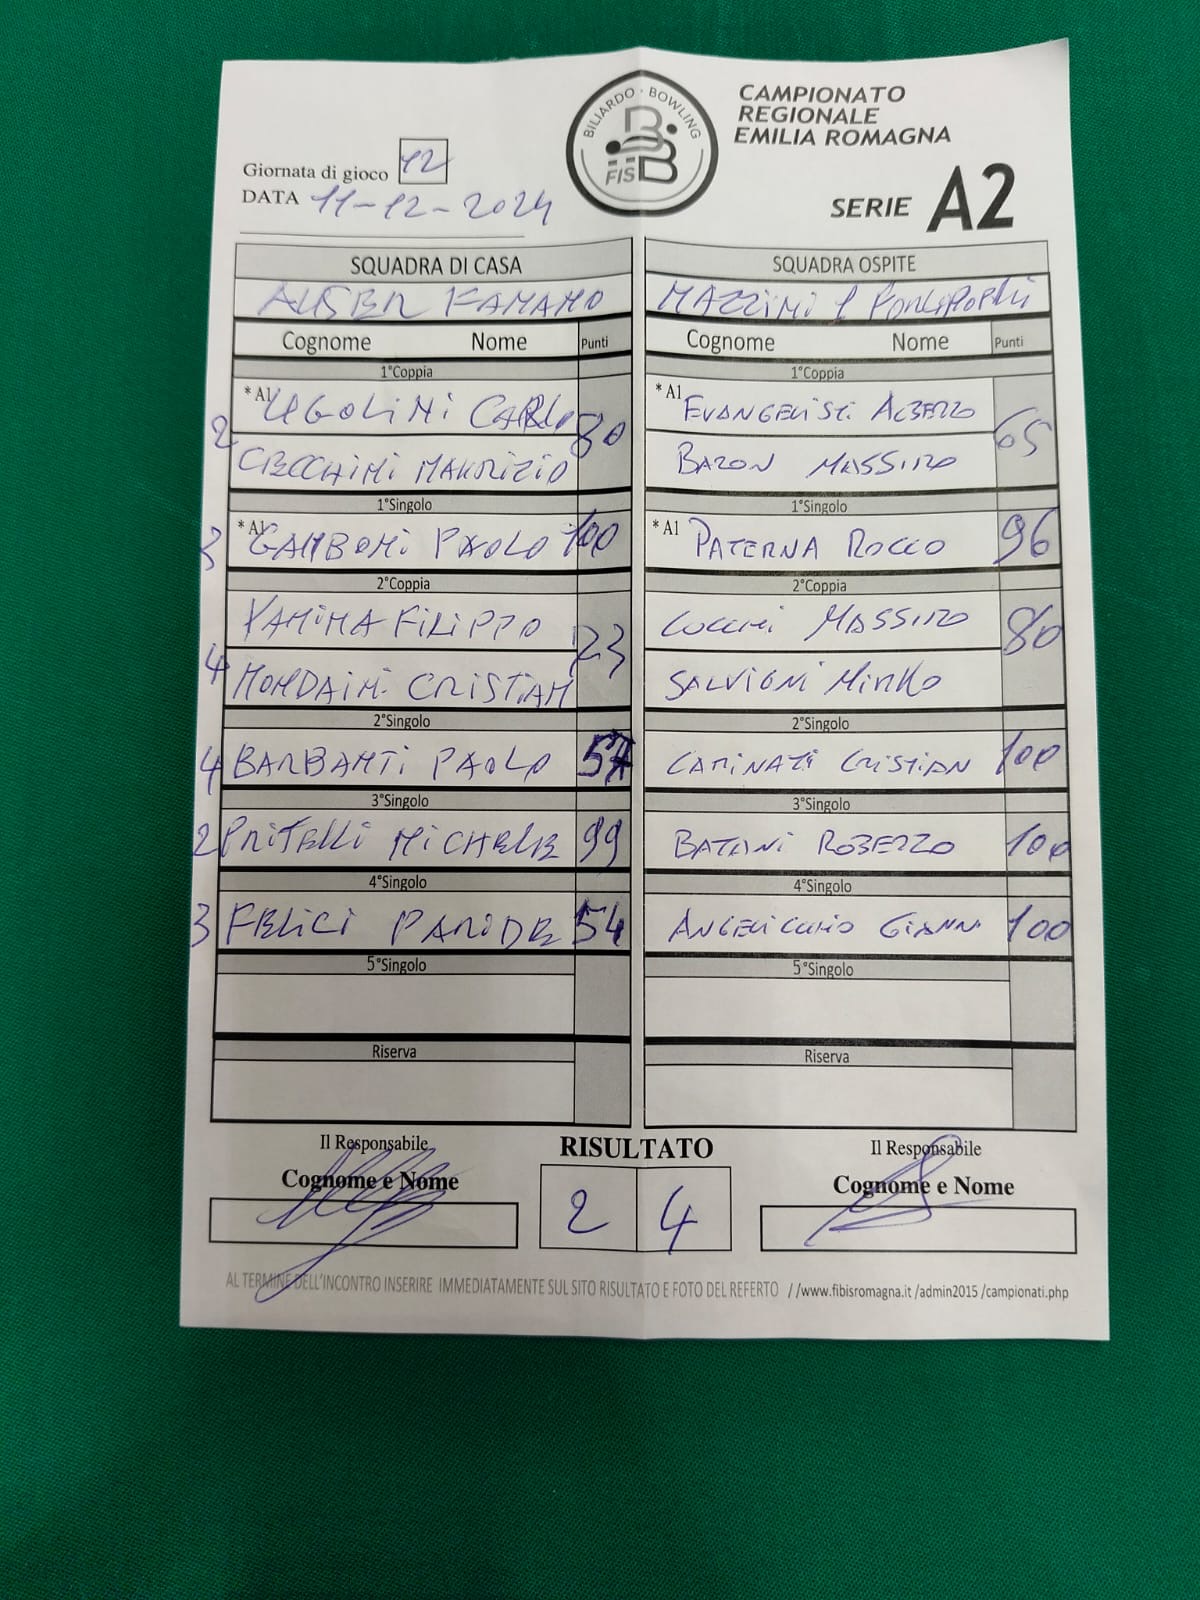 BILIARDO · BOWLING
FISBB
CAMPIONATO
REGIONALE
EMILIA ROMAGNA
SERIE A2
Giornata di gioco 12
DATA 11-12-2024
SQUADRA DI CASA
AUSER FANANO
Cognome Nome Punti
1°Coppia
2 * A1 UGOLINI CARLO 80
CECCHINI MAURIZIO
1°Singolo
3 * A1 GAMBONI PAOLO 100
2°Coppia
VANINA FILIPPO 73
4 MONDAINI CRISTIAN
2°Singolo
4 BARBANTI PAOLO 57
3°Singolo
2 PRITELLI MICHELE 99
4°Singolo
3 FELICI PARIDE 54
5°Singolo
Riserva
SQUADRA OSPITE
MAZZINI 1 FORLIMPOPOLI
Cognome Nome Punti
1°Coppia
* A1 EVANGELISTI ALBERTO 65
BARON MASSIMO
1°Singolo
* A1 PATERNA ROCCO 96
2°Coppia
COCCHI MASSIMO 80
SALVIGNI MIRKO
2°Singolo
CAMINATI CRISTIAN 100
3°Singolo
BATANI ROBERTO 100
4°Singolo
ANGELICCHIO GIANNI 100
5°Singolo
Riserva
Il Responsabile
Cognome e Nome
RISULTATO
2 4
Il Responsabile
Cognome e Nome
AL TERMINE DELL'INCONTRO INSERIRE IMMEDIATAMENTE SUL SITO RISULTATO E FOTO DEL REFERTO //www.fibisromagna.it /admin2015 /campionati.php